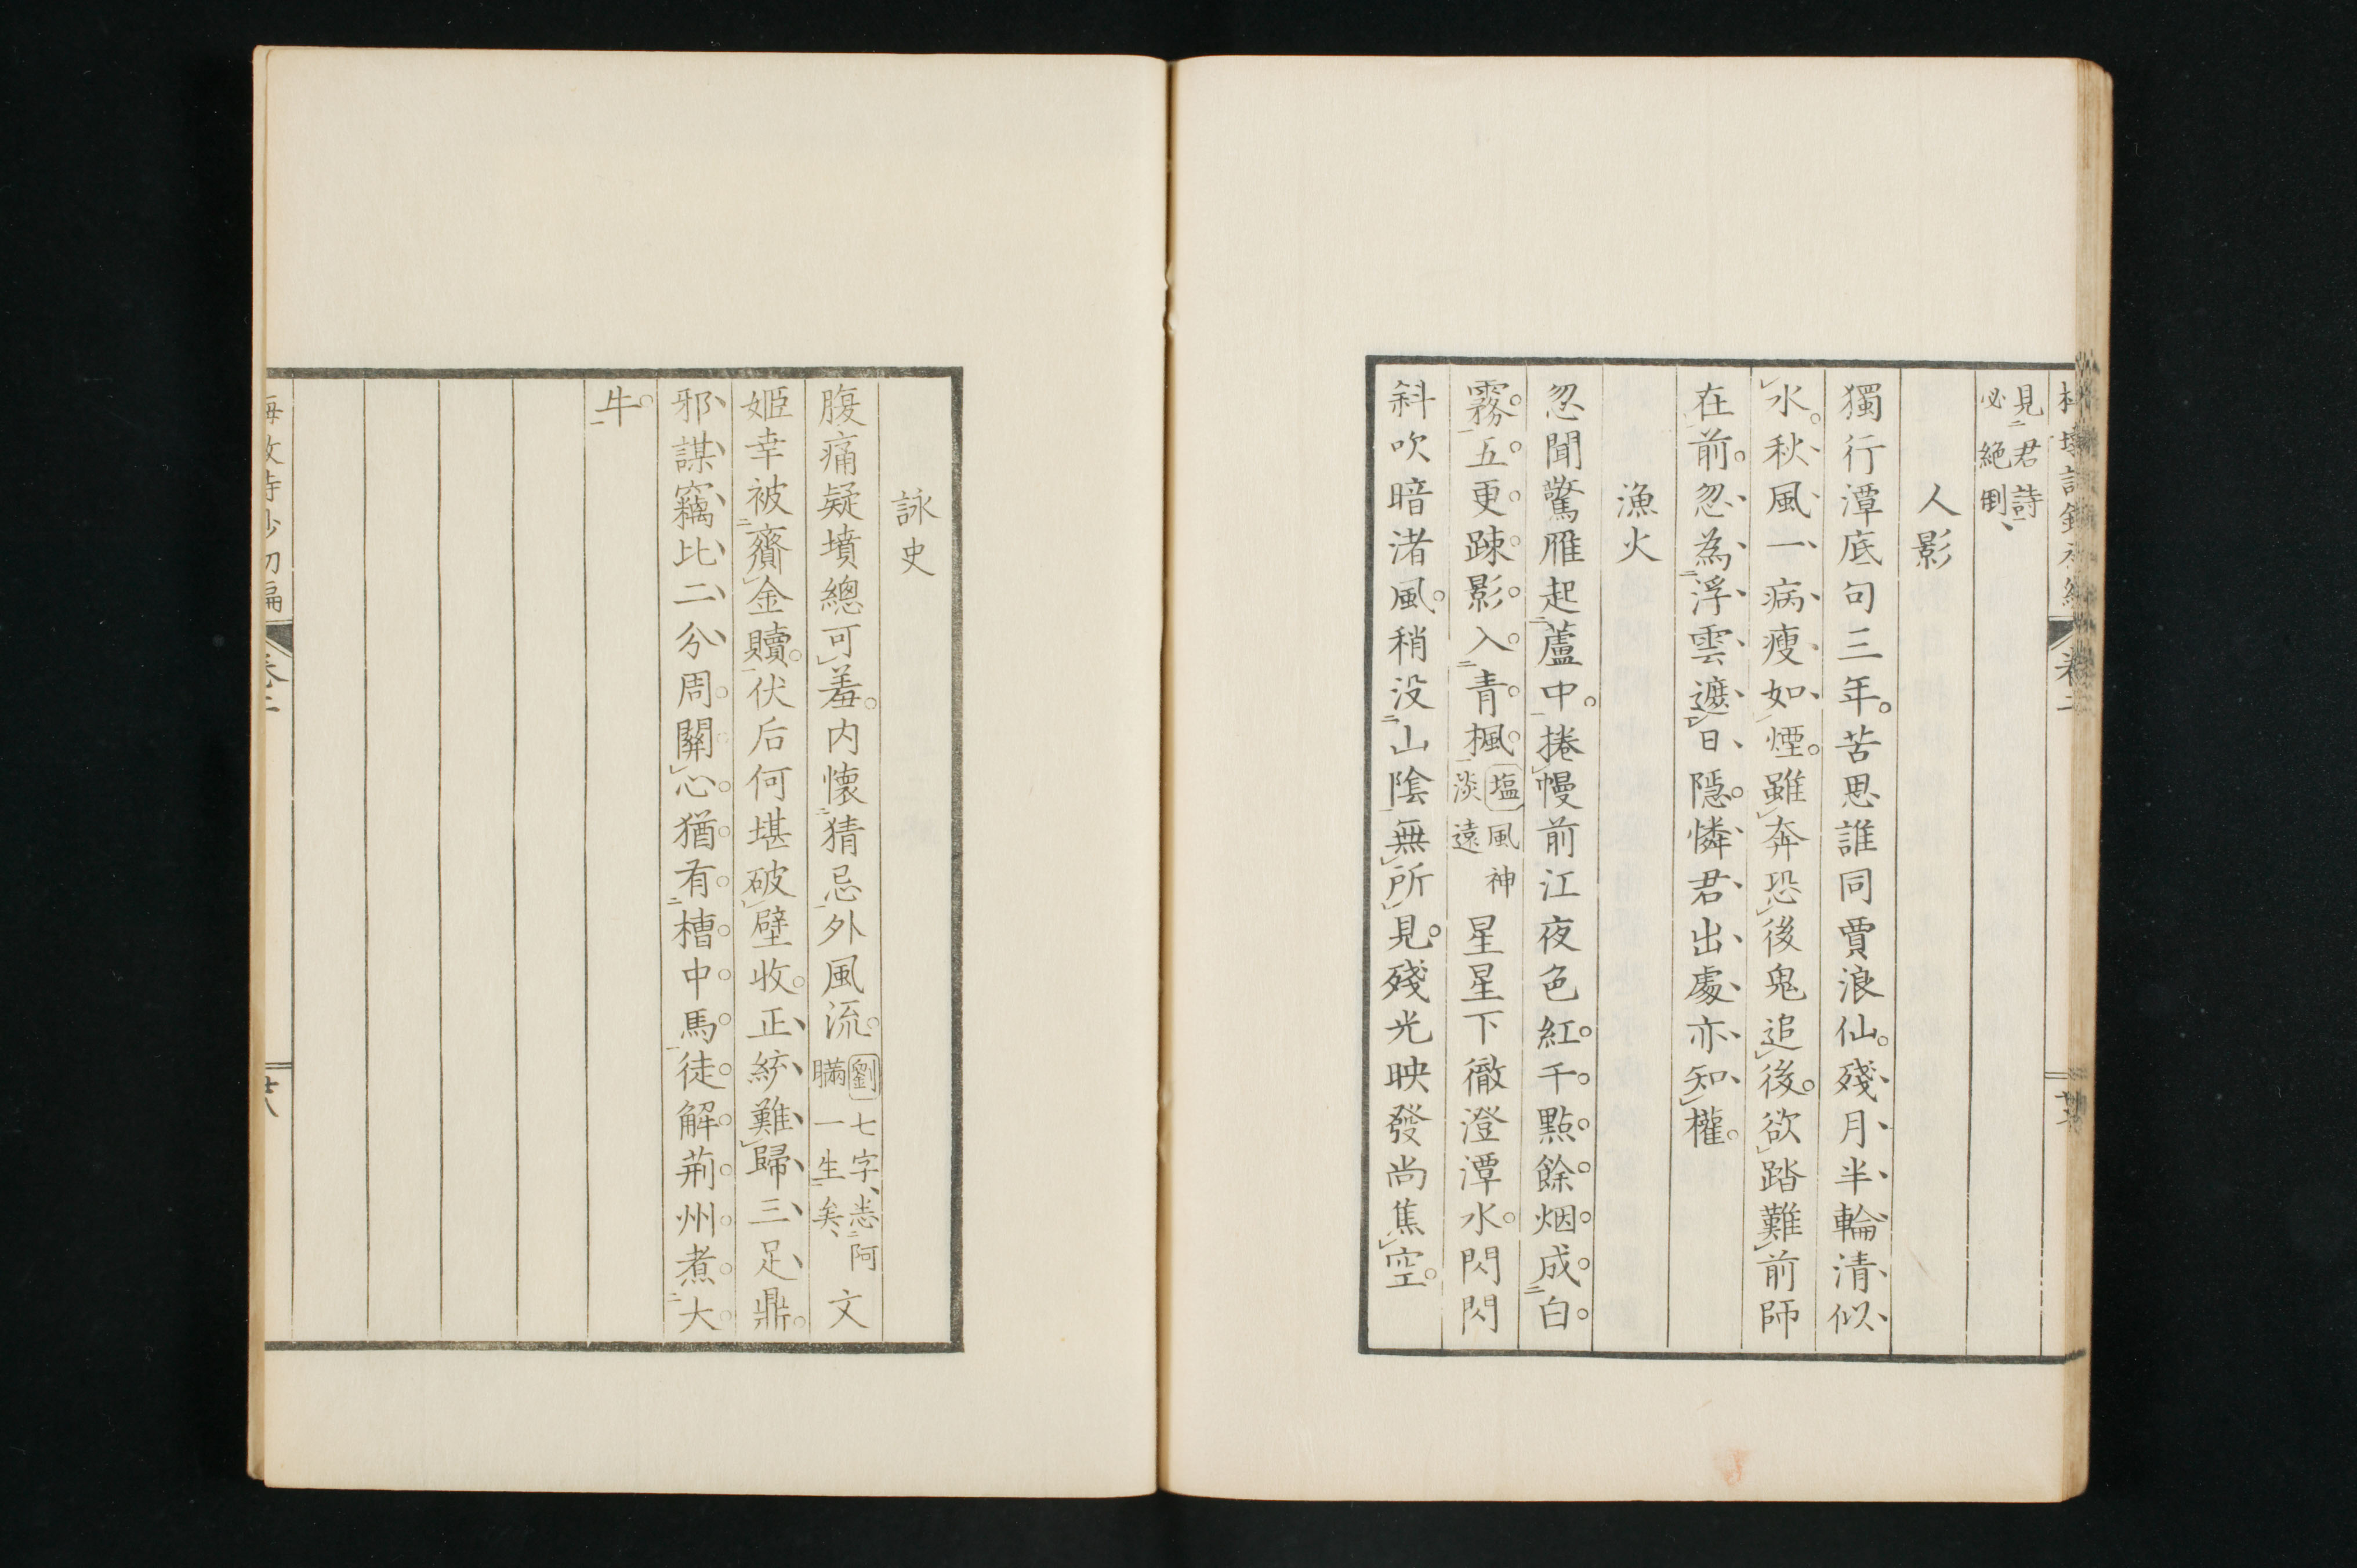 見君詩
必絕倒
人影
獨行潭底句三年。苦思誰同賈浪仙。殘月半輪清似
水。秋風一病瘦如煙。雖奔恐後鬼追後。欲踏難前師
在前。忽為浮雲遮日隱。憐君出處亦知權。
漁火
忽聞驚雁起蘆中。捲幔前江夜色紅。千點餘烟成白
霧。五更疎影入青楓。塩風神淡遠星星下徹澄潭水。閃閃
斜吹暗渚風。稍没山陰無所見。殘光映發尚焦空。
詠史
腹痛疑墳總可羞。内懷猜忌外風流。劉七字、恙阿瞞一生矣、文
姬幸被齎金贖。伏后何堪破壁收。正統難歸三足鼎。
邪謀竊比二分周。關心猶有槽中馬。徒解荊州煮大
牛。
卷二